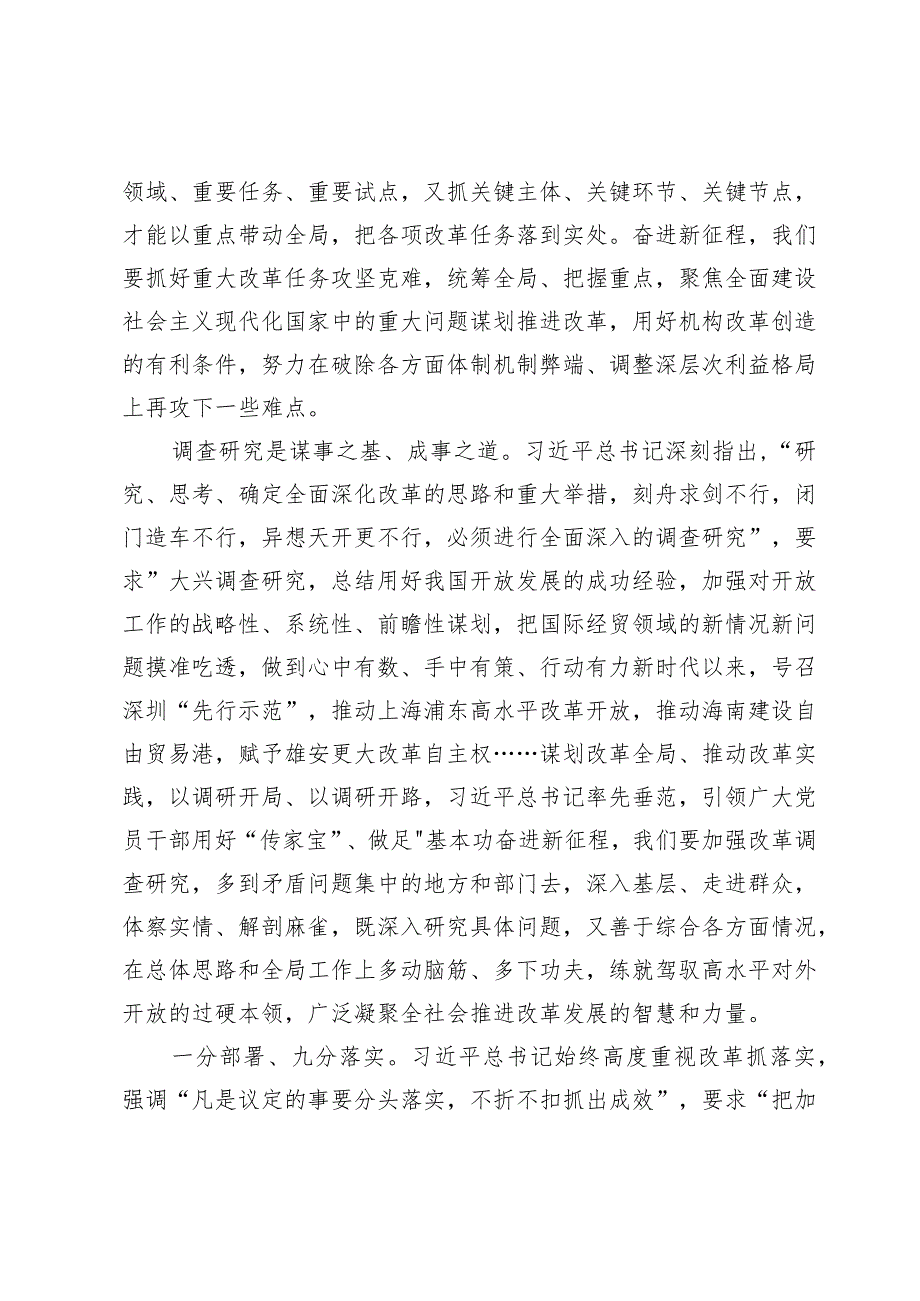 领域、重要任务、重要试点，又抓关键主体、关键环节、关键节点，
才能以重点带动全局，把各项改革任务落到实处。奋进新征程，我们
要抓好重大改革任务攻坚克难，统筹全局、把握重点，聚焦全面建设
社会主义现代化国家中的重大问题谋划推进改革，用好机构改革创造
的有利条件，努力在破除各方面体制机制弊端、调整深层次利益格局
上再攻下一些难点。
调查研究是谋事之基、成事之道。习近平总书记深刻指出，“研
究、思考、确定全面深化改革的思路和重大举措，刻舟求剑不行，闭
门造车不行，异想天开更不行，必须进行全面深入的调查研究”，要
求”大兴调查研究，总结用好我国开放发展的成功经验，加强对开放
工作的战略性、系统性、前瞻性谋划，把国际经贸领域的新情况新问
题摸准吃透，做到心中有数、手中有策、行动有力新时代以来，号召
深圳“先行示范”，推动上海浦东高水平改革开放，推动海南建设自
由贸易港，赋予雄安更大改革自主权……谋划改革全局、推动改革实
践，以调研开局、以调研开路，习近平总书记率先垂范，引领广大党
员干部用好“传家宝”、做足"基本功奋进新征程，我们要加强改革调
查研究，多到矛盾问题集中的地方和部门去，深入基层、走进群众，
体察实情、解剖麻雀，既深入研究具体问题，又善于综合各方面情况，
在总体思路和全局工作上多动脑筋、多下功夫，练就驾驭高水平对外
开放的过硬本领，广泛凝聚全社会推进改革发展的智慧和力量。
一分部署、九分落实。习近平总书记始终高度重视改革抓落实，
强调“凡是议定的事要分头落实，不折不扣抓出成效”，要求“把加